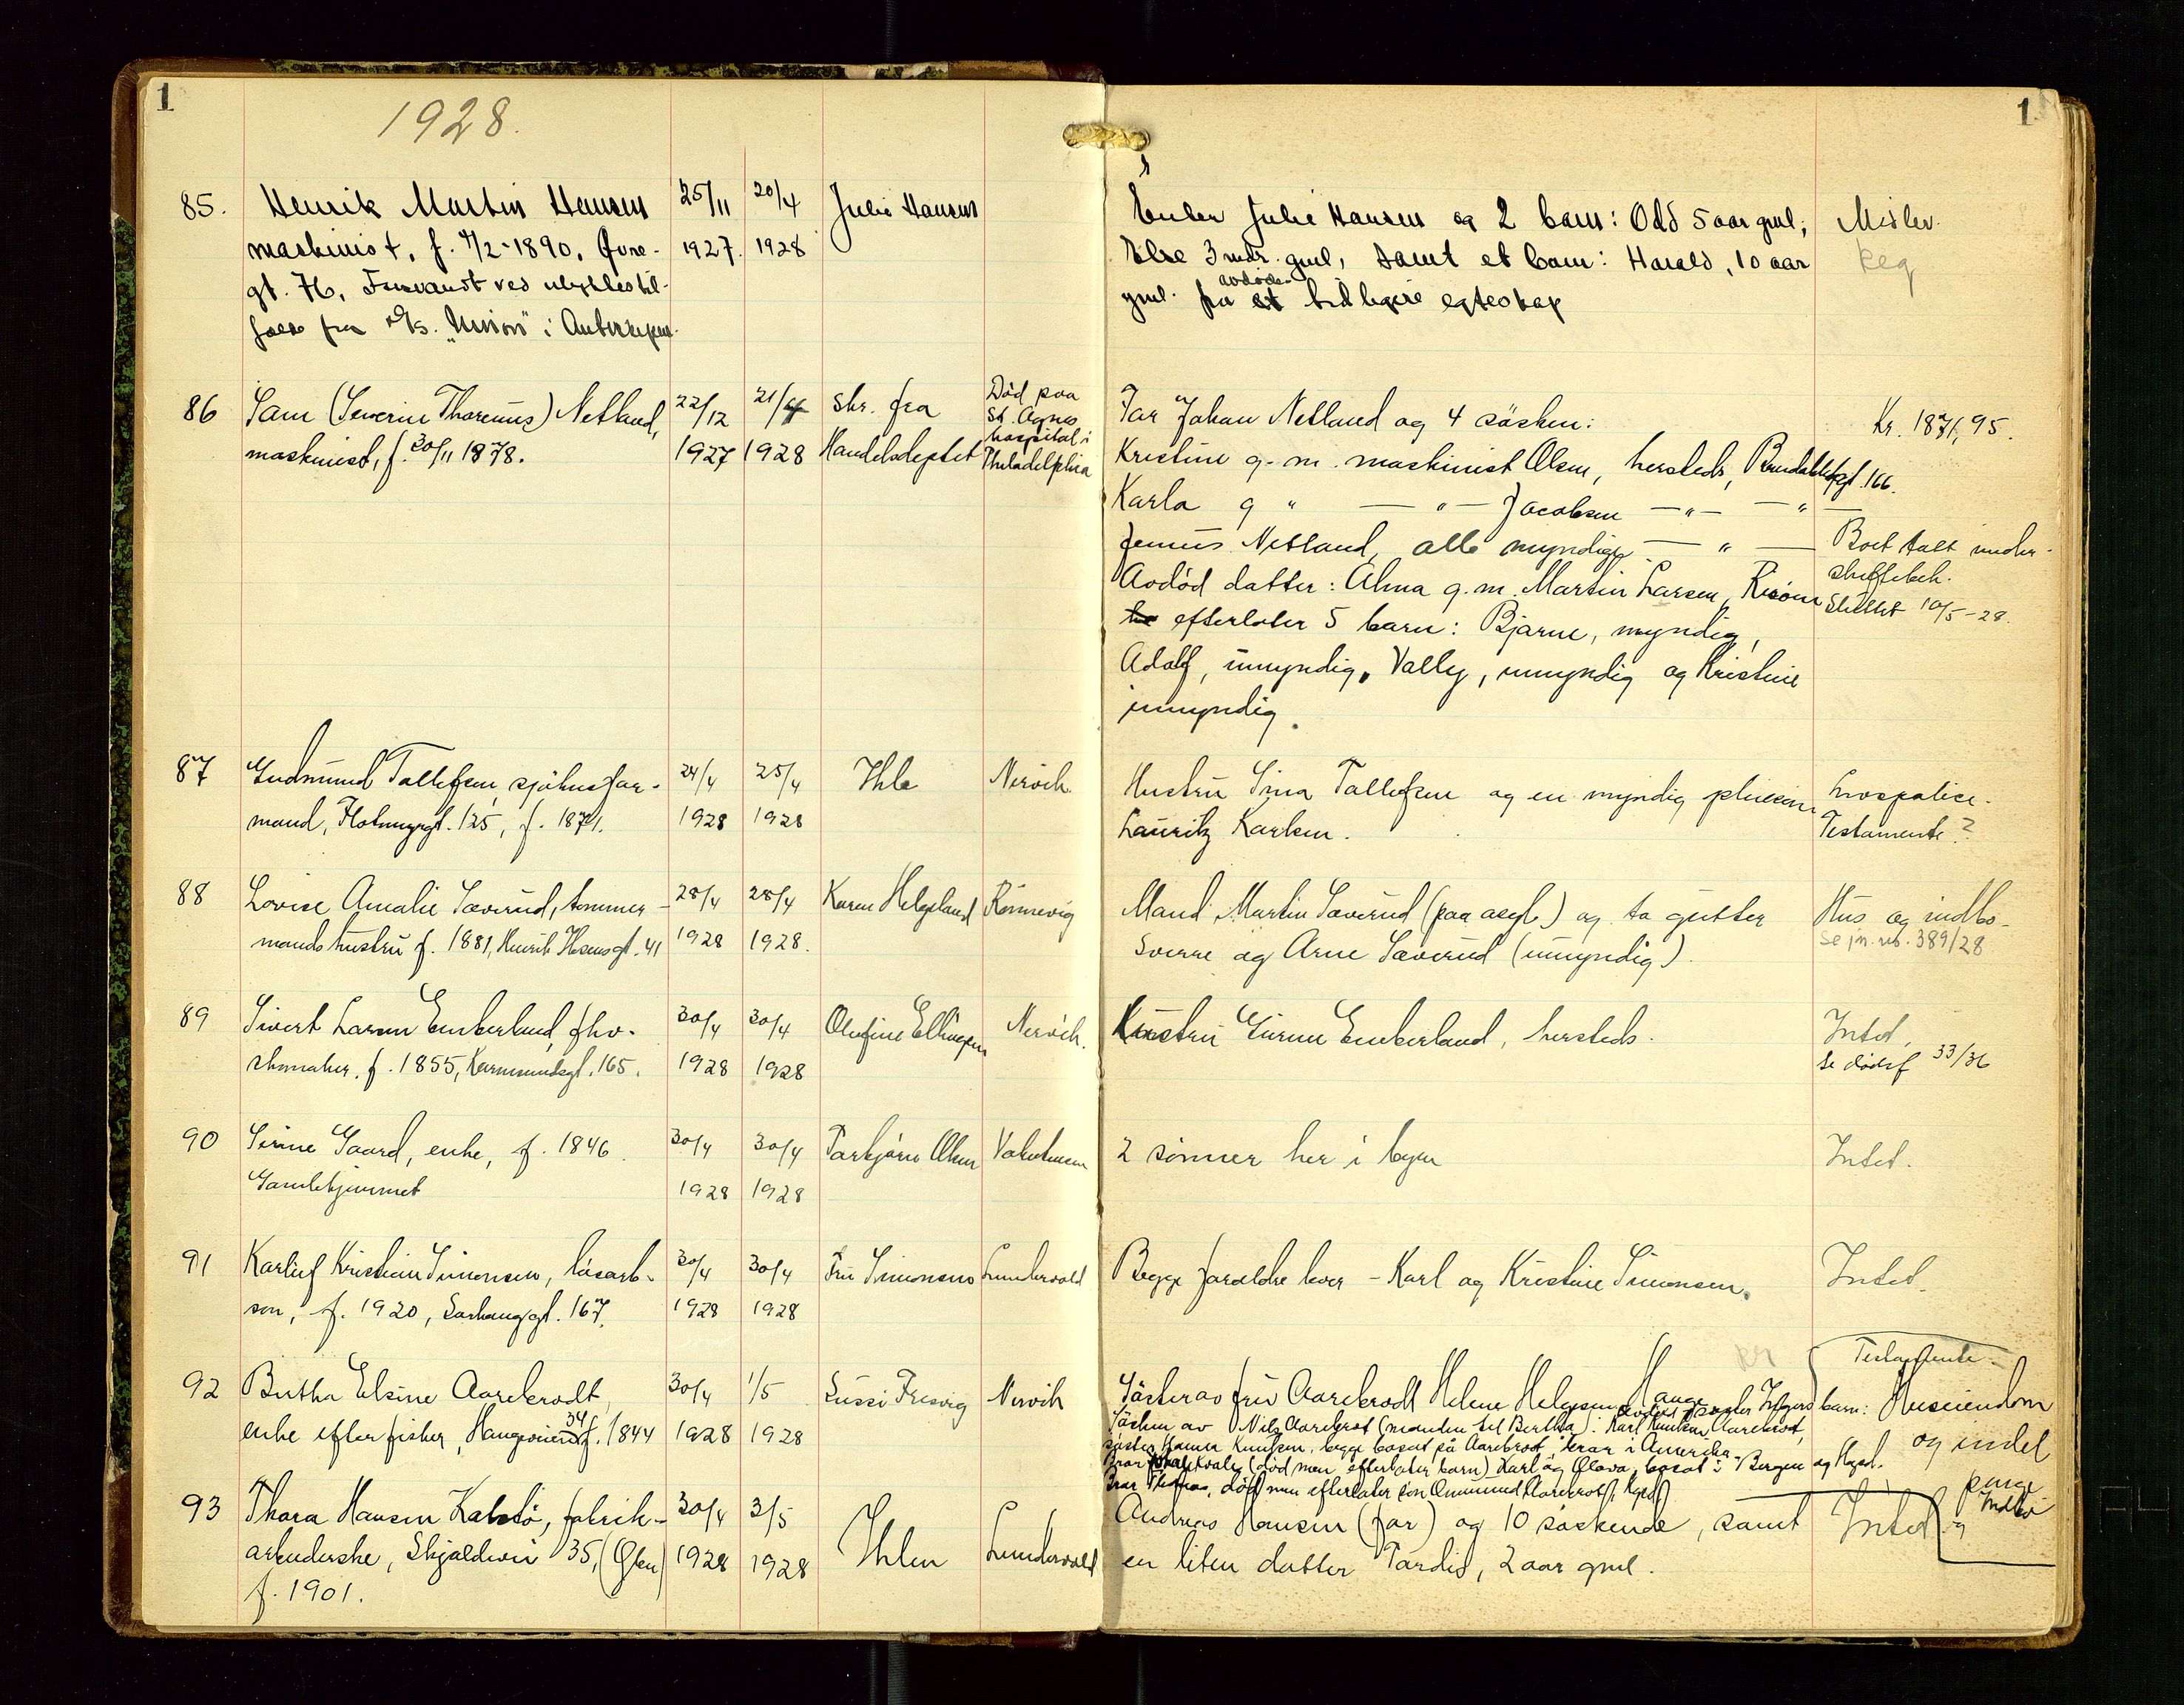 1
1928.
1
85.
Henrik Martin Hansen
maskinist, f. 4/2-1890, Øvre-
gt. 76, Forsvandt ved ulykkestil-
fælde fra D/s. "Union" i Antwerpen.
25/11
1927.
20/4
1928
Julie Hansen
Enken Julie Hansen og 2 barn: Odd 5 aar gml,
Else 3 mdr. gml, samt et barn: Harald, 10 aar
avdødes
gml. fra et tidligere egteskap
Midler.
86
Sam (Severin Thorenius) Netland,
maskinist, f. 30/11 1878.
22/12
1927
21/4
1928
Skr. fra
Handelsdeptet
Død paa
St. Agnes
hospital i
Philadelphia
Far Johan Netland og 4 søsken:
Kristine g. m. maskinist Olsen, hersteds,
gt. 166.
Karla g " — " — Jacobsen — " — — " —
Netland, alle myndige — " —
Avdød datter: Alma g. m. Martin Larsen,
efterlater 5 barn: Bjarne, myndig,
Adolf, umyndig, Vally, umyndig og Kristine
umyndig.
Kr. 1871,95.
Boet tat under
skiftebeh.
Sluttet 10/5-28.
87
Gudmund Tollefsen, sjøhusfor-
mand, gt. 125, f. 1871.
24/4
1928
25/4
1928
Ihle
Nervik
Hustru Sina Tollefsen og en myndig pleiesøn
Lauritz Karlsen.
Livspolice.
Testamente?
88
Lovise Amalie Sæverud, tømmer-
mands hustru f. 1881, Henrik Ibsensgt. 41
28/4
1928
28/4
1928.
Karen Helgeland
Rønnevig
Mand Martin Sæverud (paa asyl) og to gutter
Sverre og Arne Sæverud (umyndig).
Hus og indbo-
Se jn. nr. 389/28
89
Sivert Larsen Emberland, fhv.
skomaker, f. 1855, Karmsundsgt. 165.
30/4
1928
30/4
1928
Olufine Ellingsen
Nervik.
Hustru Emberland, hersteds.
Intet.
Se dødsf 33/36
90
Serine Gaard, enke, f. 1846.
Gamlehjemmet
30/4
1928
30/4
1928
Torbjørn Olsen
2 sønner her i byen
Intet.
91
Karluf Kristian Simonsen, løsarb.
søn, f. 1920, Sørhauggt. 167.
30/4
1928
30/4
1928
Fru Simonsen
Lundervold
Begge foreldre lever - Karl og Kristine Simonsen.
Intet.
92
Bertha Elsine Aarekrodt,
enke efter fisker, Haugeveien 34 f. 1844
30/4
1928
1/5
1928
Nervik
Søster av fru Aarekrodt Helene Helgesen Hauge
Søsken av Nils Aarekrot (manden til Bertha): Karl Knutsen Aarekrot,
søster Hanna Knutsen, begge bosat på Aarekrot, i Amerika
Bror (død men efterlater barn) Karl og Olava, bosat i Bergen og Hgsd.
Bror Thomas, død men efterlater søn Aarekrot, Hgsd.
Testamente.
barn: Huseiendom
og endel
penge
og Indbo
93
Thora Hansen Kalstø, fabrik-
arbeiderske, Skjoldvei 35,
f. 1901.
30/4
1928
3/5
1928
Ihlen
Lundervold
Andreas Hansen (far) og 10 søskende, samt
en liten datter Tordis, 2 aar gml.
Intet